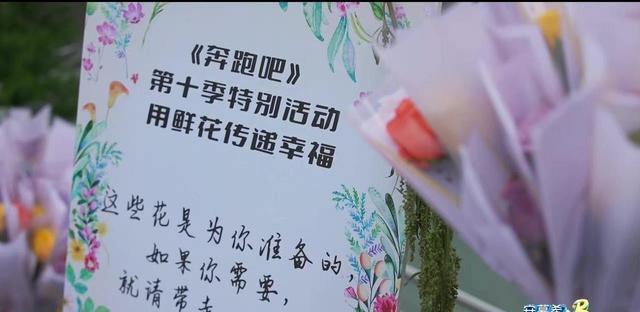 《奔跑吧》
第十季特别活动
用鲜花传递幸福
这些花是为你准备的，
如果你需要，
就请带走